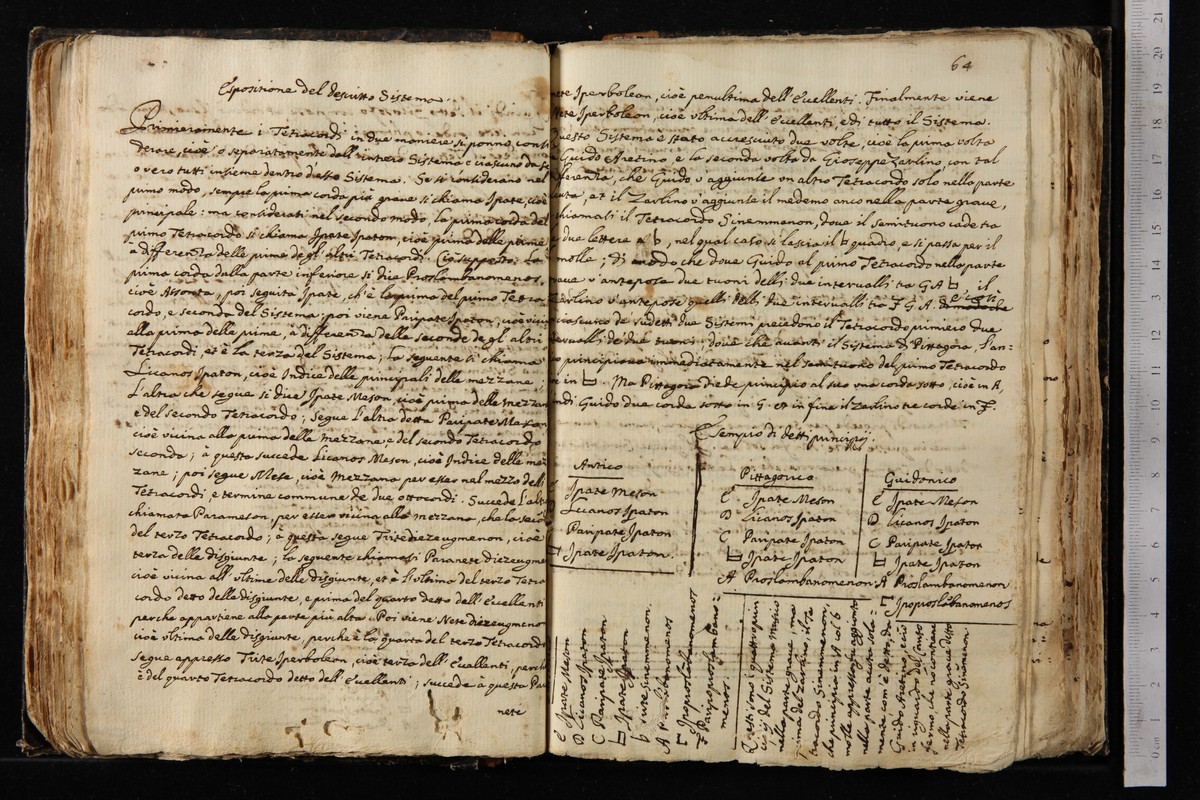 Esposizione del descritto Sistema.
Primieramente i Tetracordi in due maniere si ponno consi
derare, cioè o separatamente dall'intiero Sistema e ciascuno da se
o vero tutti insieme dentro d'esso Sistema. Se si considerano nel
primo modo, sempre la prima corda più grave si chiama Ipate, cioè
principale: ma considerati nel secondo modo, la prima corda del
primo Tetracordo si chiama Ipate Ipaton, cioè prima delle prime
à differenza delle prime degl'altri Tetracordi. Ciò supposto: La
prima corda dalla parte inferiore si dice Proslambanomenos,
cioè Assonta, poi seguita Ipate, ch'è la prima del primo Tetra
cordo, e seconda del Sistema: poi viene Paripate Ipaton, cioè vicina
alla prima delle prime, à differenza delle seconde degl'altri
Tetracordi, et è la terza del Sistema; la seguente si chiama
Licanos Ipaton, cioè Indice delle principali delle mezzane;
L'altra che segue si dice Ipate Meson, cioè prima delle mezzan
e del secondo Tetracordo; segue l'altra detta Paripate Meson
cioè vicina alla prima delle mezzane, e del secondo Tetracordo
seconda; à questa succede Licanos Meson, cioè Indice delle mez
zane; poi segue Mese, cioè Mezzana per esser nel mezzo delli
Tetracordi, e termine commune de due ottocordi. Succede l'altra
chiamata Parameson, per esser vicina alla mezzana, che la
del terzo Tetracordo; à questa segue Trite diezeugmenon, cioè
terza delle disgiunte; la seguente chiamasi Paranete diezeugme
cioè vicina all'ultima delle disgiunte, et è l'ultima del terzo Tetra
cordo detto delle disgiunte, e prima del quarto detto dell'Eccellenti
perche appartiene alla parte più alta. Poi viene Nete diezeugmeno
cioè ultima delle disgiunte, perche è la quarta del terzo Tetracordo
segue appresso Trite Iperboleon, cioè terza dell'Eccellenti, perche
è del quarto Tetracordo detto dell'Eccellenti; succede à questa Para
nete
64
nete Iperboleon, cioè penultima dell'Eccellenti. Finalmente viene
Nete Iperboleon, cioè ultima dell'Eccellenti, e di tutto il Sistema.
Questo Sistema è stato accresciuto due volte, cioè la prima volta
da Guido Aretino, e la seconda volta da Gioseppe Zarlino, con tal
differenza, che Guido v'aggiunse un altro Tetracordo solo nella parte
acuta, et il Zarlino v'aggiunse il medemo anco nella parte grave,
chiamasi il Tetracordo Sinemmenon, dove il semituono cade tra
le due lettere A b, nel qual caso si lascia il ♮ quadro, e si passa per il
b molle; di modo che dove Guido al primo Tetracordo nella parte
grave v'antepose due tuoni delli due intervalli tra G A ♮, il
Zarlino v'antepose quelli delli due intervalli tra F G A.
ciascuno de sudetti due Sistemi precedono il Tetracordo primiero due
intervalli de due tuoni; dove che avanti il Sistema di Pittagora, l'an=
principiava immediatamente nel semituono del primo Tetracordo
in ♮. Ma Pittagora diede principio al suo una corda sotto, cioè in A,
indi Guido due corde sotto in G. et in fine il Zarlino tre corde in F.
Essempio di detti principij.
Antico
Ipate Meson
Licanos Ipaton
Paripate Ipaton
♮ Ipate Ipaton.
Pittagorico
E Ipate Meson
D Licanos Ipaton
C Paripate Ipaton
♮ Ipate Ipaton
A Proslambanomenon
Guidonico
E Ipate Meson
D Licanos Ipaton
C Paripate Ipaton
♮ Ipate Ipaton
A Proslambanomenon
Γ Ipoproslãbanomenos
E Ipate Meson
D Licanos Ipaton
C Paripate Ipaton
♮ Ipate Ipaton
b Trite Sinemmenon.
A Proslambanomenos
Γ Ipoproslãbanomenos
F Paripoproslambano=
menos.
Questi sono i quattro prin
cipij del Sistema Musico
nella parte grave, ma
prima del Zarlino, il Te
tracordo Sinemmenon,
che principia in A col b
molle appresso, fu aggionto
nella parte acuta sola=
mente, com'è detto, da
Guido Aretino, e ciò
in riguardo del canto
fermo, che non contiene
nella parte grave detto
Tetracordo Sinemenon.